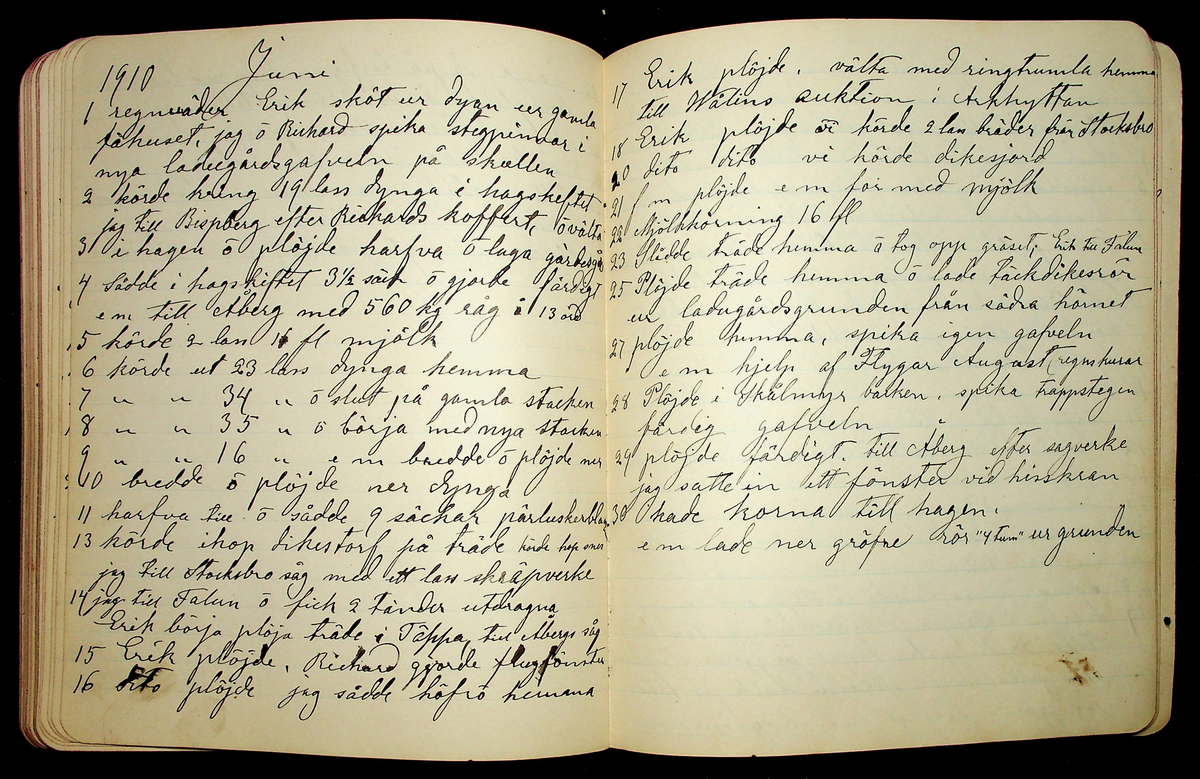 1910 Juni
1 regnväder. Erik sköt ur dyngn ur gamla
fähuset, jag ö Richard spika stegpinnar i
nya ladugårdsgafveln på skullen
2 körde kring 19 lass dynga i hagskeftet
jag till Bispberg efter Richards koffert, ö välta
3 i hagen ö plöjde harfva ö laga
4 Sådde i hagskeftet 3 1/2 säck ö gjorde färdigt
em till Åberg med 560 kg råg å 13 öre
5 körde 2 lass 11 fl mjölk
6 körde ut 23 lass dynga hemma
7 " " 34 " ö slut på gamla stacken
8 " " 35 " ö börja med nya stacken
9 " " 16 " e m bredde ö plöjde ner
10 bredde ö plöjde ner dynga
11 harfva till ö sådde 9 säckar
13 körde ihop dikestorf på träde körde hop
jag till Stocksbro såg med ett lass skräpverke
14 jag till Falun ö fick 2 tänder utdragna
Erik börja plöja träde i Täppa, till Åbergs såg
15 Erik plöjde, Richard gjorde flugfönster
16 dito plöjde jag sådde höfrö hemma
17 Erik plöjde. välta med ringtrumla hemma
till Wålins auktion i Arkhyttan
18 Erik plöjde vi körde 2 lass bräder från Stocksbro
20 dito dito vi körde dikesjord
21 f m plöjde e m for med mjölk
22 Mjölkkörning 16 fl
23 Slädde träde hemma ö tog opp gräset; Erik till Falun
25 Plöjde träde hemma ö lade täckdikesrör
ur ladugårdsgrunden från södra hörnet
27 plöjde hemma, spika igen gafveln
e m hjelp af Flygar August (regnskurar
28 Plöjde i Skålmyr backen. spika trappstegen
färdig gafveln
29 plöjde färdigt. till Åberg efter sagverke
jag satte in ett fönster vid hisskran
30 korna till hagen.
e m lade ner gröfre rör "4 tum" ur grunden